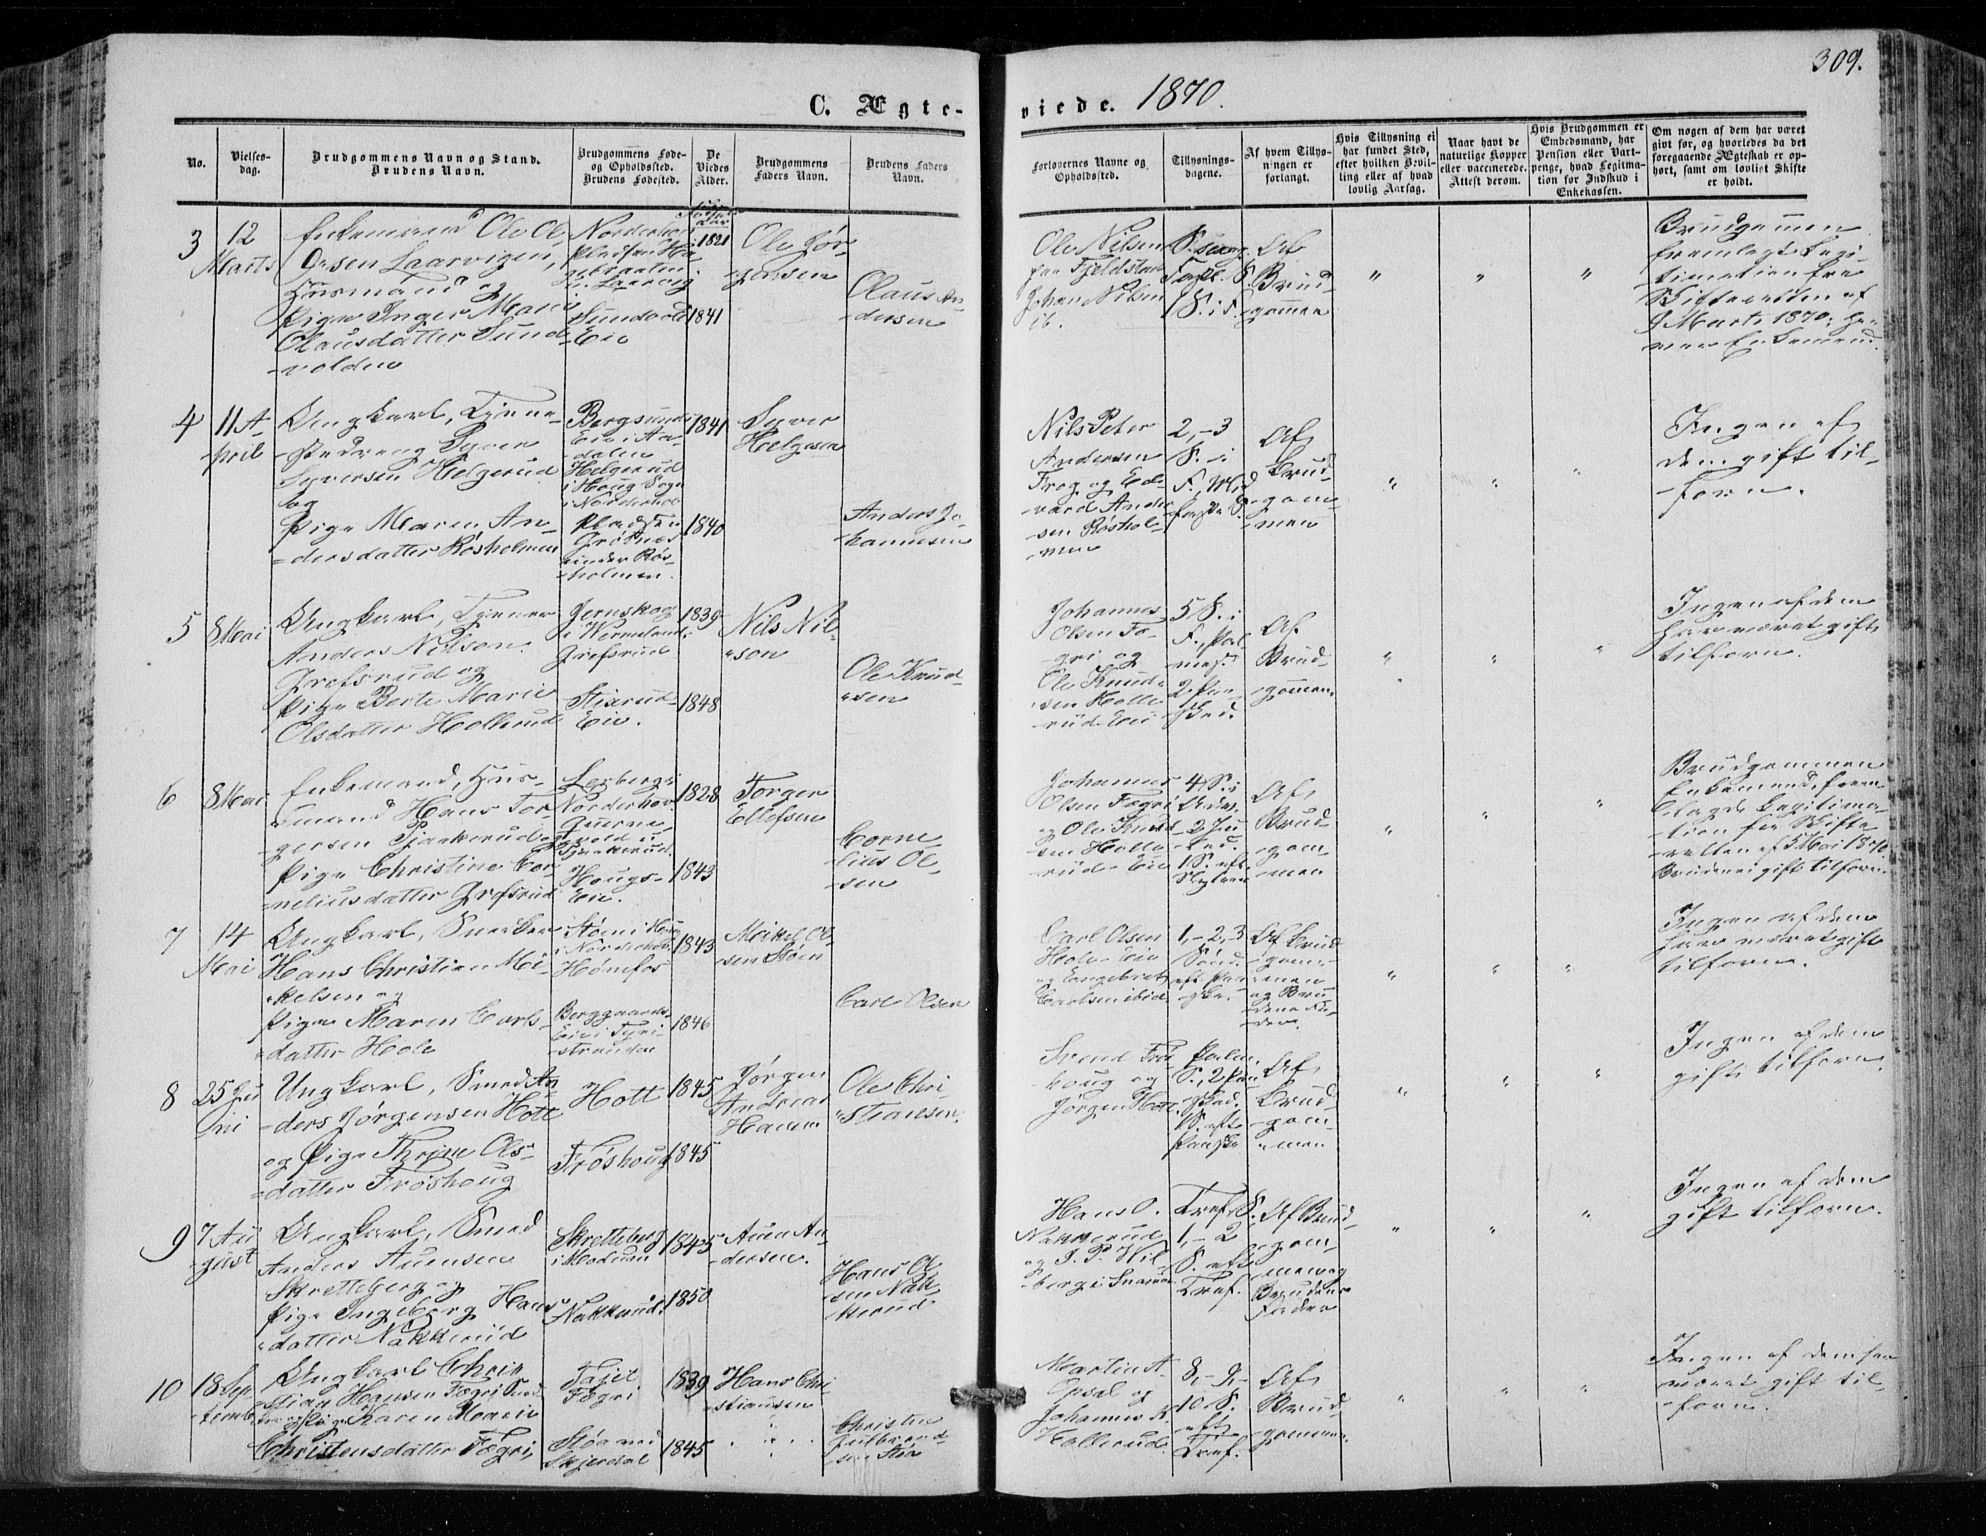 309.
C. Ægte-
viede. 1870.
No.
Vielses-
dag.
Brudgommens Navn og Stand.
Brudens Navn.
Brudgommens Føde-
og Opholdssted.
Brudens Fødested.
De
Viedes
Alder.
Brudgommens
Faders Navn.
Brudens Faders
Navn.
Forlovernes Navne og
Opholdssted.
Tillysnings-
dagene.
Af hvem Tillys-
ningen er
forlangt.
Hvis Tillysning ei
har fundet Sted,
efter hvilken Bevil-
ling eller af hvad
lovlig Aarsag.
Naar havt de
naturlige Kopper
eller vaccinerede.
Attest derom.
Hvis Brudgommen er
Embedsmand, har
Pension eller Vart-
penge, hvad Legitima-
tion for Indskud i
Enkekassen.
Om nogen af dem har været
gift før, og hvorledes da det
foregaaende Ægteskab er op-
hørt, samt om lovligt Skifte
er holdt.
3
12
Marts
Enkemand Ole Ol-
sen Laarvigen,
Husmand og
Pige Inger Marie
Olausdatter Sund-
volden
Norderhov
Sundvold
Eie
1821
1841
Ole Jør-
gensen
Olaus An-
dersen
Ole Nilsen
Fjeldstad
Johan Nilsen
ib.
1 S. i F.
Af
Brud-
gommen
Brudgommen
fremlagt Legi-
timation fra
Skifteretten af
9 Marts 1870;
Enkemand.
4
11 A-
pril
Ungkarl, Tjene-
stedreng Syver
Syversen Helgerud
og
Pige Maren An-
dersdatter Røsholmen
Bergsund
Eie i Aa-
dalen
Helgerud
i Houg Sogn
i Norderhov
Pladsen
Grøtnes
under Røs-
holmen.
1841
1840
Syver
Helgesen
Anders Jo-
hannesen
Nils Peter
Andersen
Frog og Ed-
vard Ander-
sen Røshol-
men
2,-3
S. i
F., Mid
faste S.
Af
Brud-
gom-
men
Ingen af
dem gift til-
forn.
5
8 Mai
Ungkarl, Tjener
Anders Nilson
Grefsrud og
Pige Berte Marie
Olsdatter Hollerud
Jernskog
i Wermeland;
Grefsrud
Stixrud-
Eie.
1839
1848
Nils Nil-
son
Ole Knud-
sen
Johannes
Olsen Fæ-
gri og
Ole Knud-
sen Holle-
rud-Eie
5 S. i
F., Pal-
mes.
Af
Brud-
gommen
Ingen af dem
har været gift
tilforn.
6
8 Mai
Enkemand, Hus-
mand Hans Tor-
gersen Pjaakerud og
Pige Christine Cor-
neliusdatter Grefsrud
Norderhov
Hougs-
Eie.
1828
1843
Torger
Ellefsen
Corne-
lius Ol-
sen
Johannes
Olsen Fægri
og Ole Knud-
sen Holle-
rud-Eie
4 S. i
Af
Brud-
gom-
men
Brudgommen
Enkemand, frem-
lagde Legitima-
tion fra Skifte-
retten af 3 Mai 1870.
Bruden ei gift tilforn.
7
14
Mai
Ungkarl, Snedker
Hans Christian Mi-
kelsen og
Pige Maren Carls-
datter Hole
Støen i Houg
i Norderhov
Hønefos
Berggaards-
Eie i Tyri-
stranden
1843
1846
Mikel Ol-
sen Støen
Carl Olsen
Carl Olsen
Hole-Eie
og Engebret
Carlsen ibid.
1,-2,3
Sønd.
eft. Paa-
ske.
Af Brud-
gom-
men
og Bru-
dens Fa-
der.
Ingen af dem
har været gift
tilforn.
8
25 Ju-
ni
Ungkarl, Smed An-
ders Jørgensen Hott
og Pige Thrine Ols-
datter Frøshoug
Hott
Frøshoug
1845
1845
Jørgen
Andreas
Hansen
Ole Chri-
stiansen.
Svend Frøs-
houg og
Jørgen Hott.
Palm.
S., 2 Paa-
sked.
S. eft.
Paaske
Af
Brud-
gom-
men
Ingen af dem
gift tilforn.
9
7 Au-
gust
Ungkarl, Smed
Anders Auensen
Skretteberg og
Pige Ingeborg Hans-
datter Nakkerud
Skretteberg
i Modum
Nakkerud.
1845
1850
Auen An-
dersen.
Hans Ol-
sen Nak-
kerud
Hans O.
Nakkerud
og J. P. Hil-
berg i Snarum
Tref. S.
1,-2
S. eft.
Tref.
Af Brud-
gom-
men og
Brudens
Fader
Ingen af dem
gift tilforn.
10
18 Sep-
temb.
Ungkarl Chri-
stian Hansen Fægri
og Pige Karen Marie
Christensdatter Fægri,
Fægri
Støa ved
Skjerdal
1839
1845
Hans Chri-
stiansen
Christen
Gulbrand-
sen Støa
Martin A.
Opsal og
Johannes K.
Hollerud.
8,-9,-
10 S.
eft.
Tref.
Af
Brud-
gommen.
Ingen af dem har
været gift til-
forn.